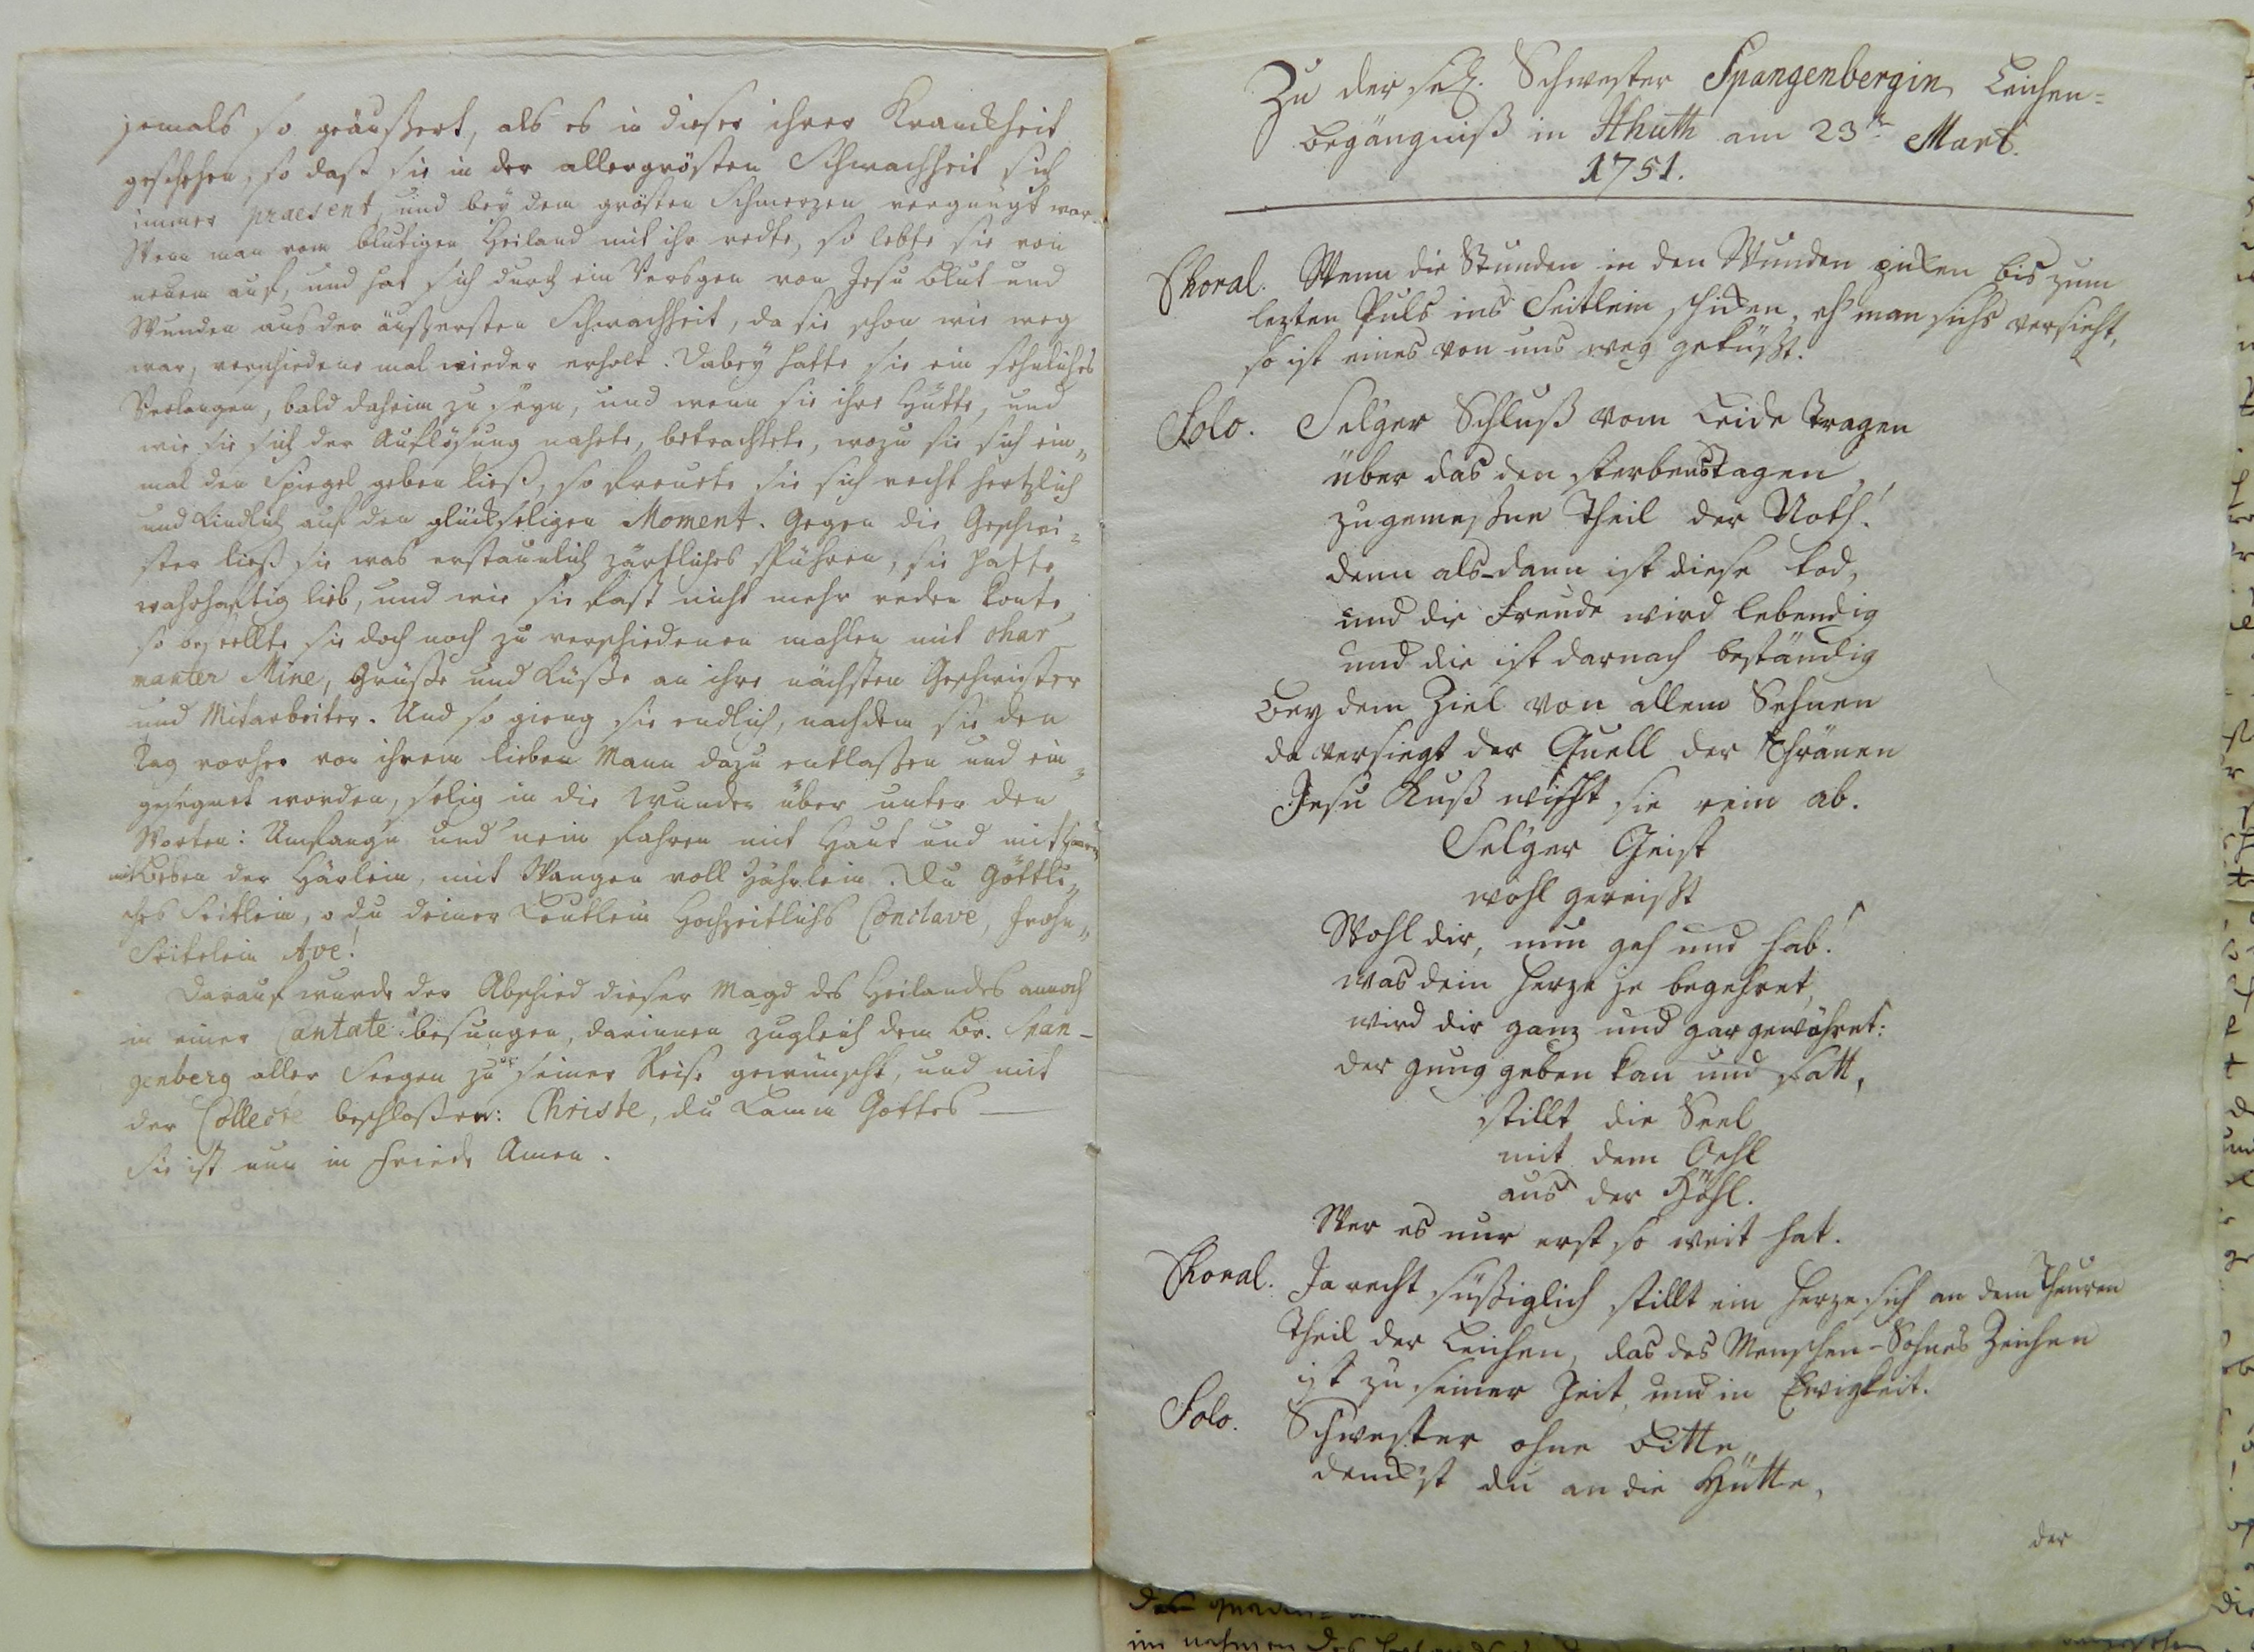 jemals so geäußert, als es in dieser ihrer Kranckheit
geschehen, so daß sie in der allergrösten Schwachheit sich
immer praesent, und bey dem grösten Schmerzen vergnügt war.
Wenn man vom blutigen Heiland mit ihr redte, so lebte sie von
neuem auf, und hat sich durch ein Versgen von Jesu Blut und
Wunden aus der äußersten Schwachheit, da sie schon wie weg
war, verschiedene mal wieder erholt. Dabey hatte sie ein sehnliches
Verlangen, bald daheim zu seyn, und wenn sie ihre Hütte, und
wie sie sich der Auflösung nahete, betrachtete, wozu sie sich ein„
mal den Spiegel geben ließ, so freuete sie sich recht hertzlich
und kindlich auf den glückseligen Moment. Gegen die Geschwi„
ster ließ sie was erstaunlich zärtliches spühren, sie hatte
wahrhaftig lieb, und wie sie fast nicht mehr reden konte,
so bestellte sie doch noch zu verschiedenen mahlen mit char
manter Mine, Grüße und Küße an ihre nächsten Geschwister
und Mitarbeiter. Und so gieng sie endlich, nachdem sie den
Tag vorher von ihrem lieben Mann dazu entlaßen und ein„
gesegnet worden, selig in die Wunden über unter den
Worten: Umfang'n und 'nein fahren mit Haut und mit Haaren
mit Beben der Härlein, mit Wangen voll Zährlein. Du Göttli„
ches Seitlein, o du deiner Leutlein Hochzeitlichs Conclave, Frohn„
Seitelein Ave!
Darauf wurde der Abschied dieser Magd des Heilandes annoch
in einer Cantate besungen, darinnen zugleich dem Br. Span-
genberg aller Seegen zu seiner Reise gewünscht, und mit
der Collecte beschloßen: Christe, du Lamm Gottes —
Sie ist nun in Friede Amen.
Zu der sel. Schwester Spangenbergin Leichen=
begängniß in Hhuth am 23ten Mart.
1751.
Choral. Wenn die Stunden in den Wunden picken bis zum
lezten Puls ins Seitlein schicken, eh man sichs versieht,
so ist eines von uns weg geküßt.
Solo. Sel'ger Schluß vom Leide tragen
über das den sterbenstagen
zugemeßne Theil der Noth!
denn als-dann ist diese tod,
und die Freude wird lebendig
und die ist darnach beständig
Bey dem Ziel von allem Sehnen
da versiegt der Quell der Thränen
Jesu Kuß wischt sie rein ab.
Sel'ger Geist
wohl gereißt
Wohl dir, nun geh und hab!
was dein Herze je begehret,
wird dir ganz und gar gewähret:
der gnug geben kan und satt,
stillt die Seel
mit dem Oehl
aus der Höhl.
Wer es nur erst so weit hat.
Choral. Ja recht süßiglich stillt ein Herze sich an dem theuren
Theil der Leichen, das des Menschen-Sohnes Zeichen
ist zu seiner Zeit, und in Ewigkeit.
Solo. Schwester ohne Bitte
denckst du an die Hütte,
der